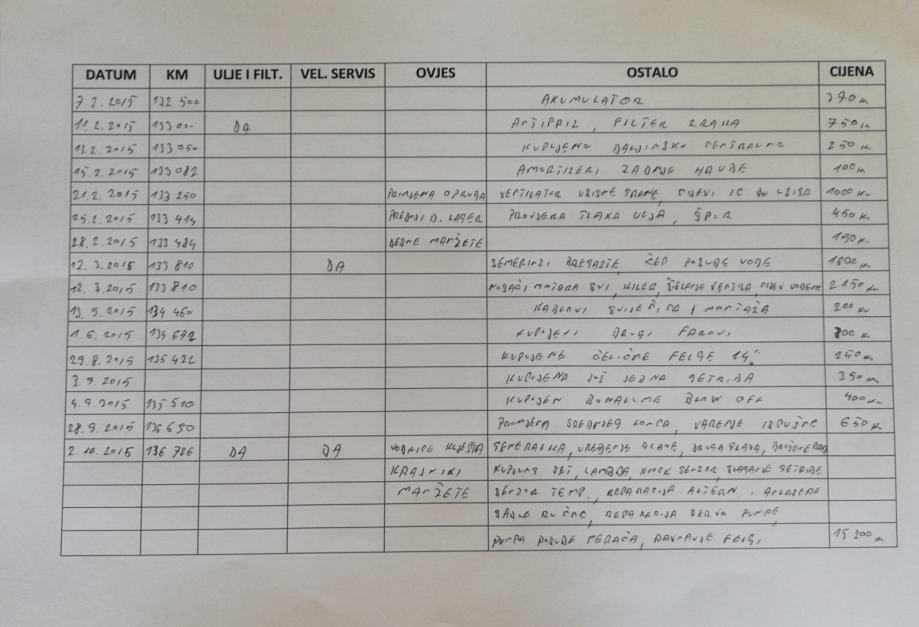 DATUM KM ULJE I FILT. VEL. SERVIS OVJES OSTALO CIJENA
7.2.2015 132 500 AKUMULATOR 370 kn
11.2.2015 133 000 DA ANTIFRIZ, FILTER ZRAKA 750 kn
13.2.2015 133 050 KUPLJENO DALJINSKO CENTRALNO 250 kn
15.2.2015 133 082 AMORTIZERI ZADNJE HAUBE 100 kn
21.2.2015 133 250 PROMJENA OPRUGA VENTILATOR 1000 kn
25.2.2015 133 414 PREDNJI D. LAGER PROVJERA TLAKA ULJA, ŠPUR 450 kn
28.2.2015 133 484 MANŽETE 150 kn
12.3.2015 133 810 DA SEMERINZI BREGASTE, ČEP POSUDE VODE 1800 kn
12.3.2015 133 810 NOSAČI MOTORA SVI, KILER, 2150 kn
13.5.2015 134 460 KABLOVI SVIJEĆICA I MONTAŽA 200 kn
1.6.2015 134 672 KUPLJENI DRUGI FAROVI 700 kn
29.8.2015 135 422 KUPLJENE ČELIČNE FELGE 14" 250 kn
3.9.2015 KUPLJENA JOŠ JEDNA 350 kn
4.9.2015 135 510 KUPLJEN BLOW OFF 400 kn
28.9.2015 136 650 PROMJENA SREDNJEG LONCA, VARENJE 650 kn
2.10.2015 136 726 DA DA GENERALKA, UREĐENJE GLAVE, DONJA GLAVA,
KRAJNIKI LAMBDA, KNOCK SENZOR,
MANŽETE SENZOR TEMP., REPARACIJA ALTERN.,
SAJLE RUČNE, REPARACIJA SERVO PUMPE,
PUMPA POSUDE PERAČA, FELGI 15 200 kn